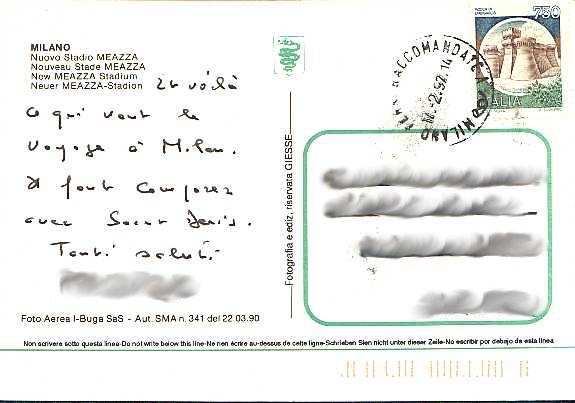 MILANO
Nuovo Stadio MEAZZA
Nouveau Stade MEAZZA
New MEAZZA Stadium
Neuer MEAZZA-Stadion
Et voilà
ce qui vaut le
voyage à Milan.
Il faut composer
avec Saint Denis.
Tanti saluti
Foto Aerea I-Buga SaS - Aut. SMA n. 341 del 22.03.90
Fotografia e ediz. riservata GIESSE
750
ITALIA
RACCOMANDATE
MILANO
.2.92.14
Non scrivere sotto questa linea-Do not write below this line-Ne rien écrire au-dessus de cette ligne-Schrieben Sien nicht unter dieser Zeile-No escribir por debajo de esta linea